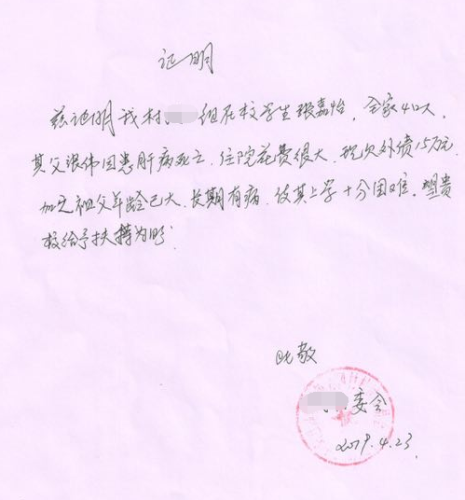 证明
兹证明我村 组在校学生张嘉怡，全家4口人，
其父张伟因患肝病死亡，住院花费很大，现欠外债15万元，
加之祖父年龄已大，长期有病，使其上学十分困难，望贵
校给予扶持为盼
此敬
委会
2019.4.23